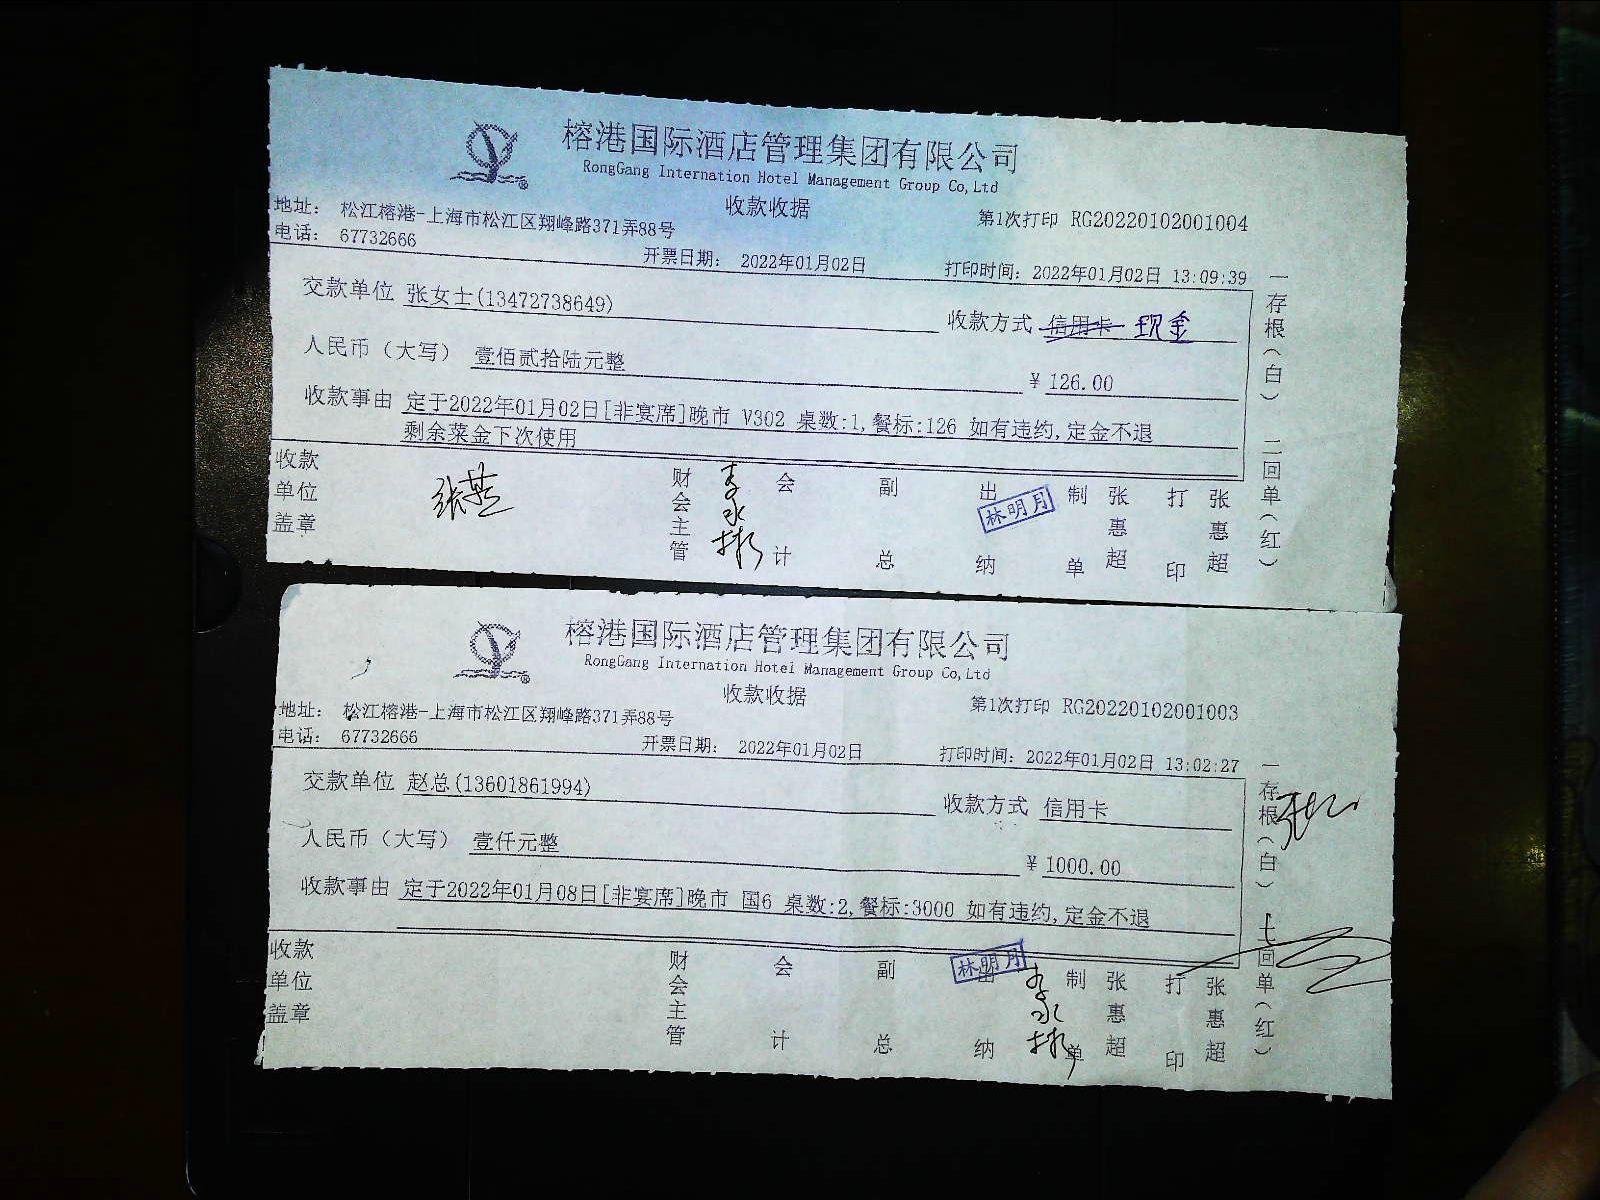 榕港国际酒店管理集团有限公司
RongGang Internation Hotel Management Group Co,Ltd
收款收据
第1次打印 RG20220102001004
地址： 松江榕港-上海市松江区翔峰路371弄88号
电话： 67732666
开票日期： 2022年01月02日
打印时间：2022年01月02日 13:09:39
交款单位 张女士(13472738649)
收款方式 信用卡 现金
人民币（大写） 壹佰贰拾陆元整
¥ 126.00
收款事由 定于2022年01月02日[非宴席]晚市 V302 桌数:1,餐标:126 如有违约,定金不退
剩余菜金下次使用
收款单位盖章 张燕
财会主管 李永彬
会计
副总
出纳 林明月
制单 张惠超
打印 张惠超
一存根（白） 二回单（红）
榕港国际酒店管理集团有限公司
RongGang Internation Hotel Management Group Co,Ltd
收款收据
第1次打印 RG20220102001003
地址： 松江榕港-上海市松江区翔峰路371弄88号
电话： 67732666
开票日期： 2022年01月02日
打印时间：2022年01月02日 13:02:27
交款单位 赵总(13601861994)
收款方式 信用卡
人民币（大写） 壹仟元整
¥ 1000.00
收款事由 定于2022年01月08日[非宴席]晚市 国6 桌数:2,餐标:3000 如有违约,定金不退
收款单位盖章
财会主管
会计
副总
出纳 林明月
李永彬
制单 张惠超
打印 张惠超
一存根（白） 回单（红）